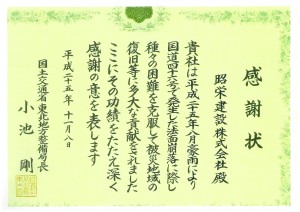 感謝状
昭栄建設株式会社 殿
貴社は平成二十五年八月豪雨により
国道四十六号で発生した法面崩落に際し
種々の困難を克服して被災地域の
復旧等に多大な貢献をされました
ここにその功績をたたえ深く
感謝の意を表します
平成二十五年十一月八日
国土交通省東北地方整備局長
小池 剛